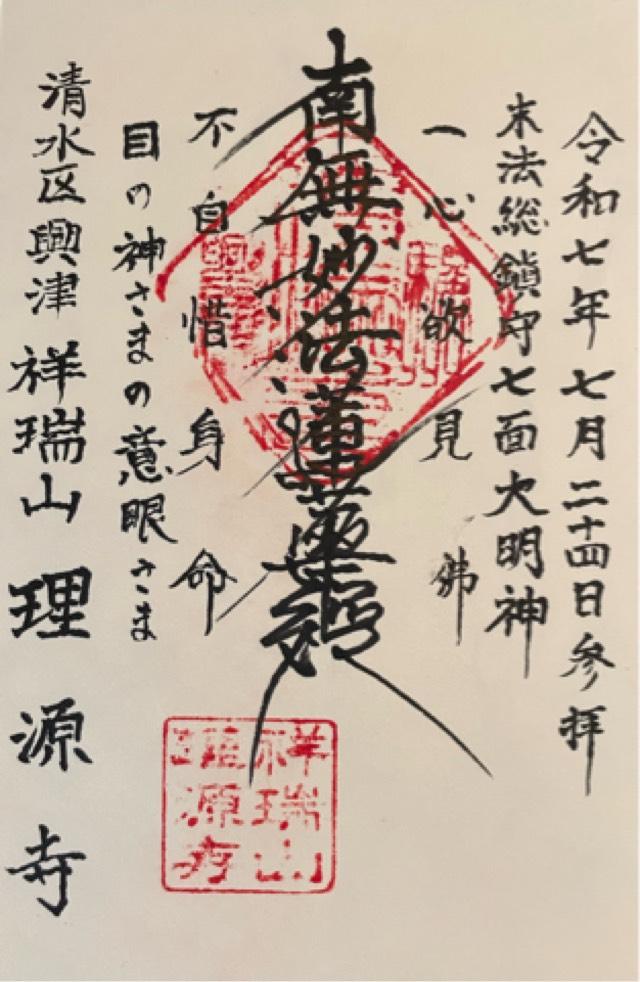 令和七年七月二十四日参拝
末法総鎮守七面大明神
一心欲見佛
南無妙法蓮華経
不自惜身命
目の神さまの意眼さま
清水区興津祥瑞山理源寺
祥瑞山
理源寺